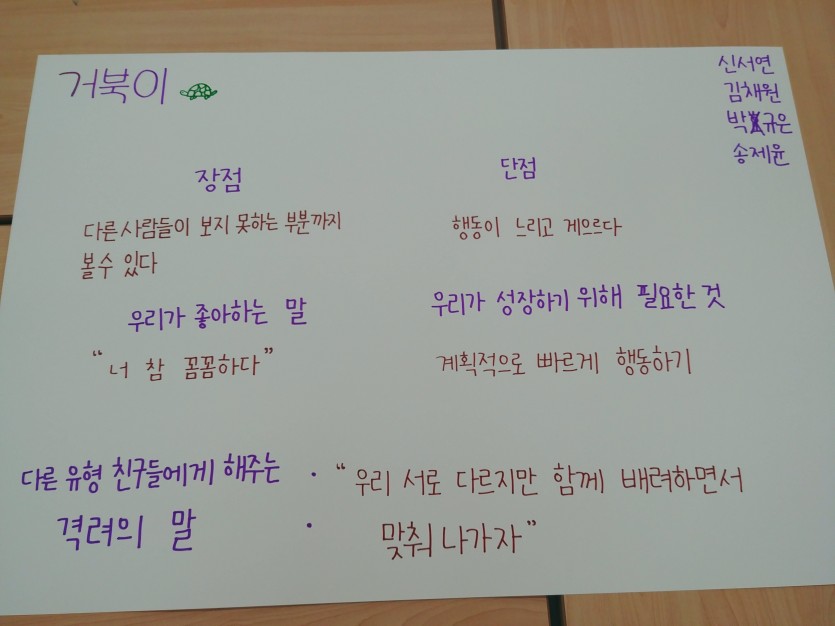 거북이
신서연
김채원
박규은
송제윤
장점
다른 사람들이 보지 못하는 부분까지
볼 수 있다
단점
행동이 느리고 게으르다
우리가 좋아하는 말
"너 참 꼼꼼하다"
우리가 성장하기 위해 필요한 것
계획적으로 빠르게 행동하기
다른 유형 친구들에게 해주는
격려의 말
· "우리 서로 다르지만 함께 배려하면서
· 맞춰 나가자"